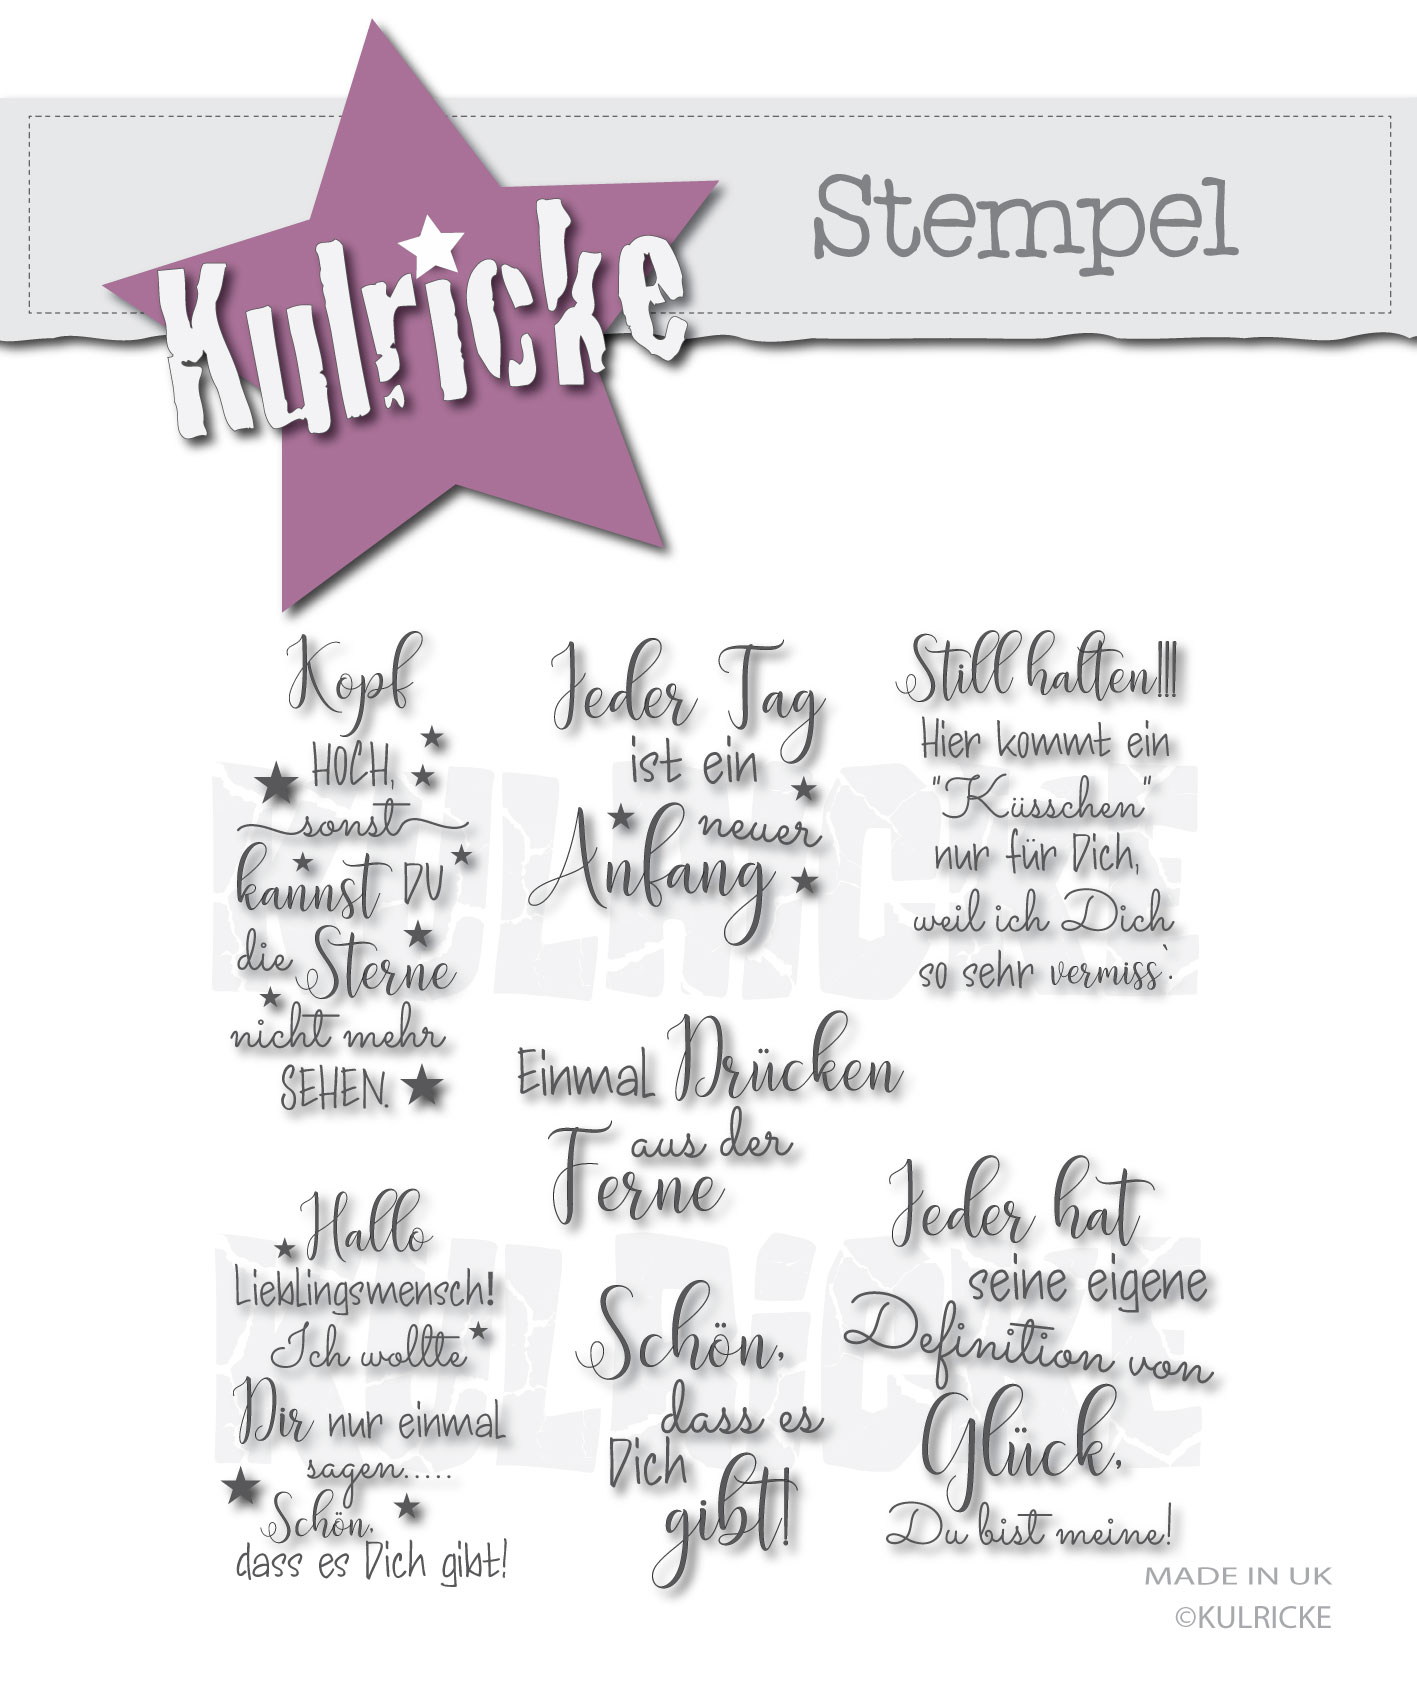 Kulricke
Stempel
Kopf
HOCH,
sonst
kannst DU
die Sterne
nicht mehr
SEHEN.
Jeder Tag
ist ein
neuer
Anfang
Still halten!!!
Hier kommt ein
"Küsschen"
nur für Dich,
weil ich Dich
so sehr vermiss`.
Einmal Drücken
aus der
Ferne
Hallo
Lieblingsmensch!
Ich wollte
Dir nur einmal
sagen.....
Schön,
dass es Dich gibt!
Schön,
dass es
Dich
gibt!
Jeder hat
seine eigene
Definition von
Glück,
Du bist meine!
KULRICKE
KULRICKE
MADE IN UK
©KULRICKE